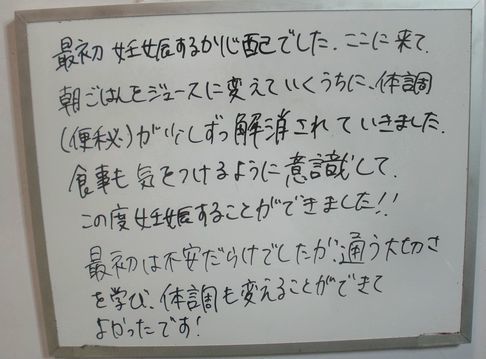 最初 妊娠するか心配でした。ここに来て、
朝ごはんをジュースに変えていくうちに、体調
(便秘)が少しずつ解消されていきました。
食事も気をつけるように意識して、
この度妊娠することができました!!
最初は不安だらけでしたが、通う大切さ
を学び、体調も変えることができて
よかったです!